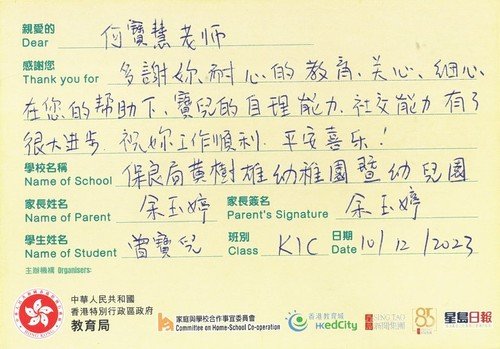 親愛的
Dear 何寶慧老师
感謝您
Thank you for 多謝妳、耐心的教育、关心、细心
在您的帮助下、寶兒的自理能力、社交能力有了
很大进步. 祝妳工作順利. 平安喜乐!
學校名稱
Name of School 保良局黄樹雄幼稚園暨幼兒園
家長姓名 家長簽名
Name of Parent 余玉婷 Parent's Signature 余玉婷
學生姓名 班別 日期
Name of Student 曾寶兒 Class K1C Date 10/12/2023
主辦機構 Organisers:
中華人民共和國
香港特別行政區政府
教育局
HONG KONG
家庭與學校合作事宜委員會
Committee on Home-School Co-operation
香港教育城
HKedCity
SING TAO
星島新聞集團
85
星島日報